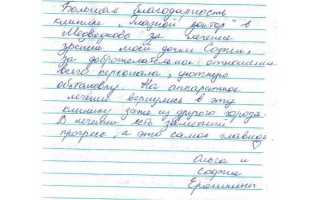 Большая благодарность
клинике "Глазной доктор" в
Медведково за лечение
зрения моей дочери Софии,
За доброжелательное отношение
всего персонала, уютную
обстановку. На аппаратное
лечение вернулись в эту
клинику даже из другого города.
В лечении есть заметный
прогресс, а это самое главное.
Ольга и
София
Ерохины